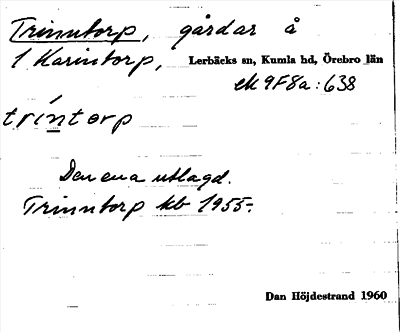 Trinntorp, gårdar å
1 Karintorp, Lerbäcks sn, Kumla hd, Örebro län
ek 9F8a:638
tríntorp
Den ena utlagd.
Trinntorp kb 1955.
Dan Höjdestrand 1960